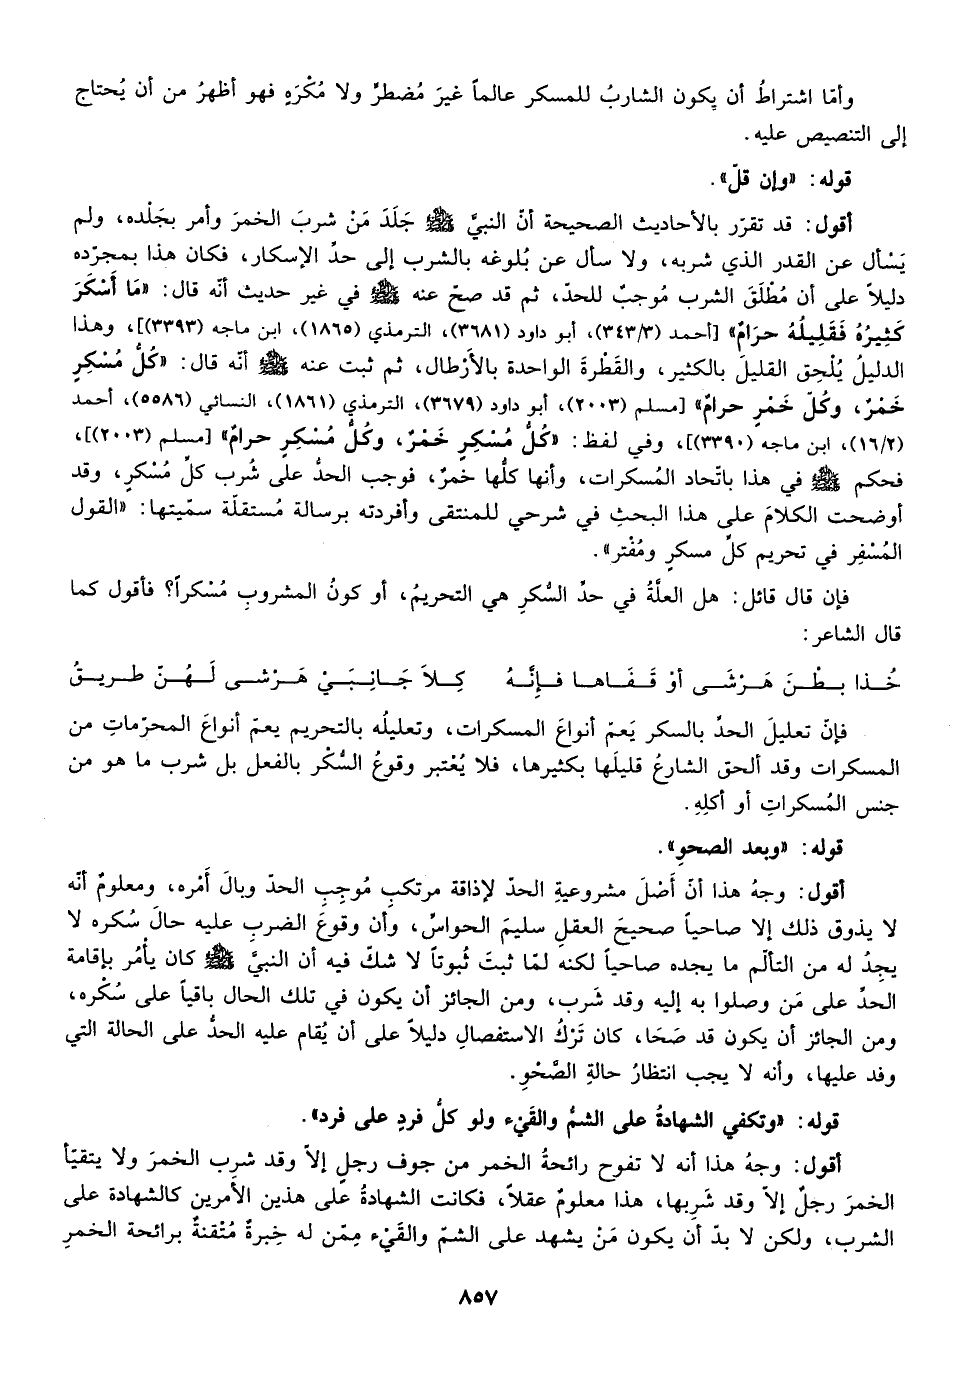 وأمّا اشتراطُ أن يكون الشاربُ للمسكر عالماً غيرَ مُضطرٍّ ولا مُكْرَهٍ فهو أظهرُ من أن يُحتاج
إلى التنصيص عليه.
قوله: «وإن قلّ».
أقول: قد تقرّر بالأحاديث الصحيحة أنّ النبيَّ ﷺ جَلَدَ مَنْ شربَ الخمرَ وأمر بجَلْده، ولم
يَسْأل عن القدر الذي شربه، ولا سأل عن بُلوغه بالشرب إلى حدِّ الإسكار، فكان هذا بمجرّده
دليلاً على أن مُطْلَقَ الشرب مُوجبٌ للحدّ، ثم قد صحّ عنه ﷺ في غير حديث أنّه قال: «مَا أَسْكَرَ
كَثِيرُهُ فَقَلِيلُهُ حرامٌ» [أحمد (٣٤٣/٣)، أبو داود (٣٦٨١)، الترمذي (١٨٦٥)، ابن ماجه (٣٣٩٣)]، وهذا
الدليلُ يُلْحِق القليلَ بالكثير، والقَطْرةَ الواحدة بالأرْطال، ثم ثبت عنه ﷺ أنّه قال: «كُلُّ مُسْكِرٍ
خَمْرٌ، وكُلّ خَمْرٍ حرامٌ» [مسلم (٢٠٠٣)، أبو داود (٣٦٧٩)، الترمذي (١٨٦١)، النسائي (٥٥٨٦)، أحمد
(١٦/٢)، ابن ماجه (٣٣٩٠)]، وفي لفظ: «كُلُّ مُسْكِرٍ خَمْرٌ، وكُلُّ مُسْكِرٍ حرامٌ» [مسلم (٢٠٠٣)]،
فحكم ﷺ في هذا باتّحاد المُسكرات، وأنها كلُّها خمرٌ، فوجب الحدُّ على شُرب كلِّ مُسْكرٍ، وقد
أوضحت الكلامَ على هذا البحثِ في شرحي للمنتقى وأفردته برسالة مُستقلّة سمّيتها: «القول
المُسْفِر في تحريم كلِّ مسكرٍ ومُفْتر».
فإن قال قائل: هل العلّةُ في حدِّ السُّكرِ هي التحريمُ، أو كونُ المشروبِ مُسْكراً؟ فأقول كما
قال الشاعر:
خُـذا بطْـنَ هَـرْشَـى أوْ قَـفَـاهـا فـإِنَّـهُ كِـلاَ جَـانِـبَـيْ هَـرْشـى لَـهُـنّ طـريـقُ
فإنّ تعليلَ الحدِّ بالسكر يَعمّ أنواعَ المسكرات، وتعليلُه بالتحريم يعمّ أنواعَ المحرّماتِ من
المسكرات وقد ألحق الشارعُ قليلَها بكثيرها، فلا يُعْتبر وقوعُ السُّكْر بالفعل بل شرب ما هو من
جنس المُسكراتِ أو أكلِهِ.
قوله: «وبعد الصحوِ».
أقول: وجهُ هذا أنّ أَصْلَ مشروعيةِ الحدّ لإذاقة مرتكبِ مُوجِبِ الحدّ وبالَ أَمْره، ومعلومٌ أنّه
لا يذوق ذلك إلا صاحياً صحيحَ العقلِ سليمَ الحواسِّ، وأن وقوعَ الضربِ عليه حالَ سُكره لا
يجِدُ له من التألّم ما يجده صاحياً لكنه لمّا ثبتَ ثُبوتاً لا شكّ فيه أن النبيَّ ﷺ كان يأْمُر بإقامة
الحدِّ على مَن وصلوا به إليه وقد شَرب، ومن الجائز أن يكون في تلك الحال باقياً على سُكْره،
ومن الجائز أن يكون قد صَحَا، كان تَرْكُ الاستفصالِ دليلاً على أن يُقام عليه الحدُّ على الحالة التي
وفد عليها، وأنه لا يجب انتظارُ حالةِ الصَّحْوِ.
قوله: «وتكفي الشهادةُ على الشمِّ والقَيْء ولو كلُّ فردٍ على فرد».
أقول: وجهُ هذا أنه لا تفوح رائحةُ الخمر من جوف رجلٍ إلاّ وقد شرِب الخمرَ ولا يتقيّأ
الخمرَ رجلٌ إلاّ وقد شَرِبها، هذا معلومٌ عقلاً، فكانت الشهادةُ على هذين الأمرين كالشهادة على
الشرب، ولكن لا بدّ أن يكون مَنْ يشهد على الشمّ والقَيْء مِمّن له خِبرةٌ مُتْقنةٌ برائحة الخمرِ
٨٥٧